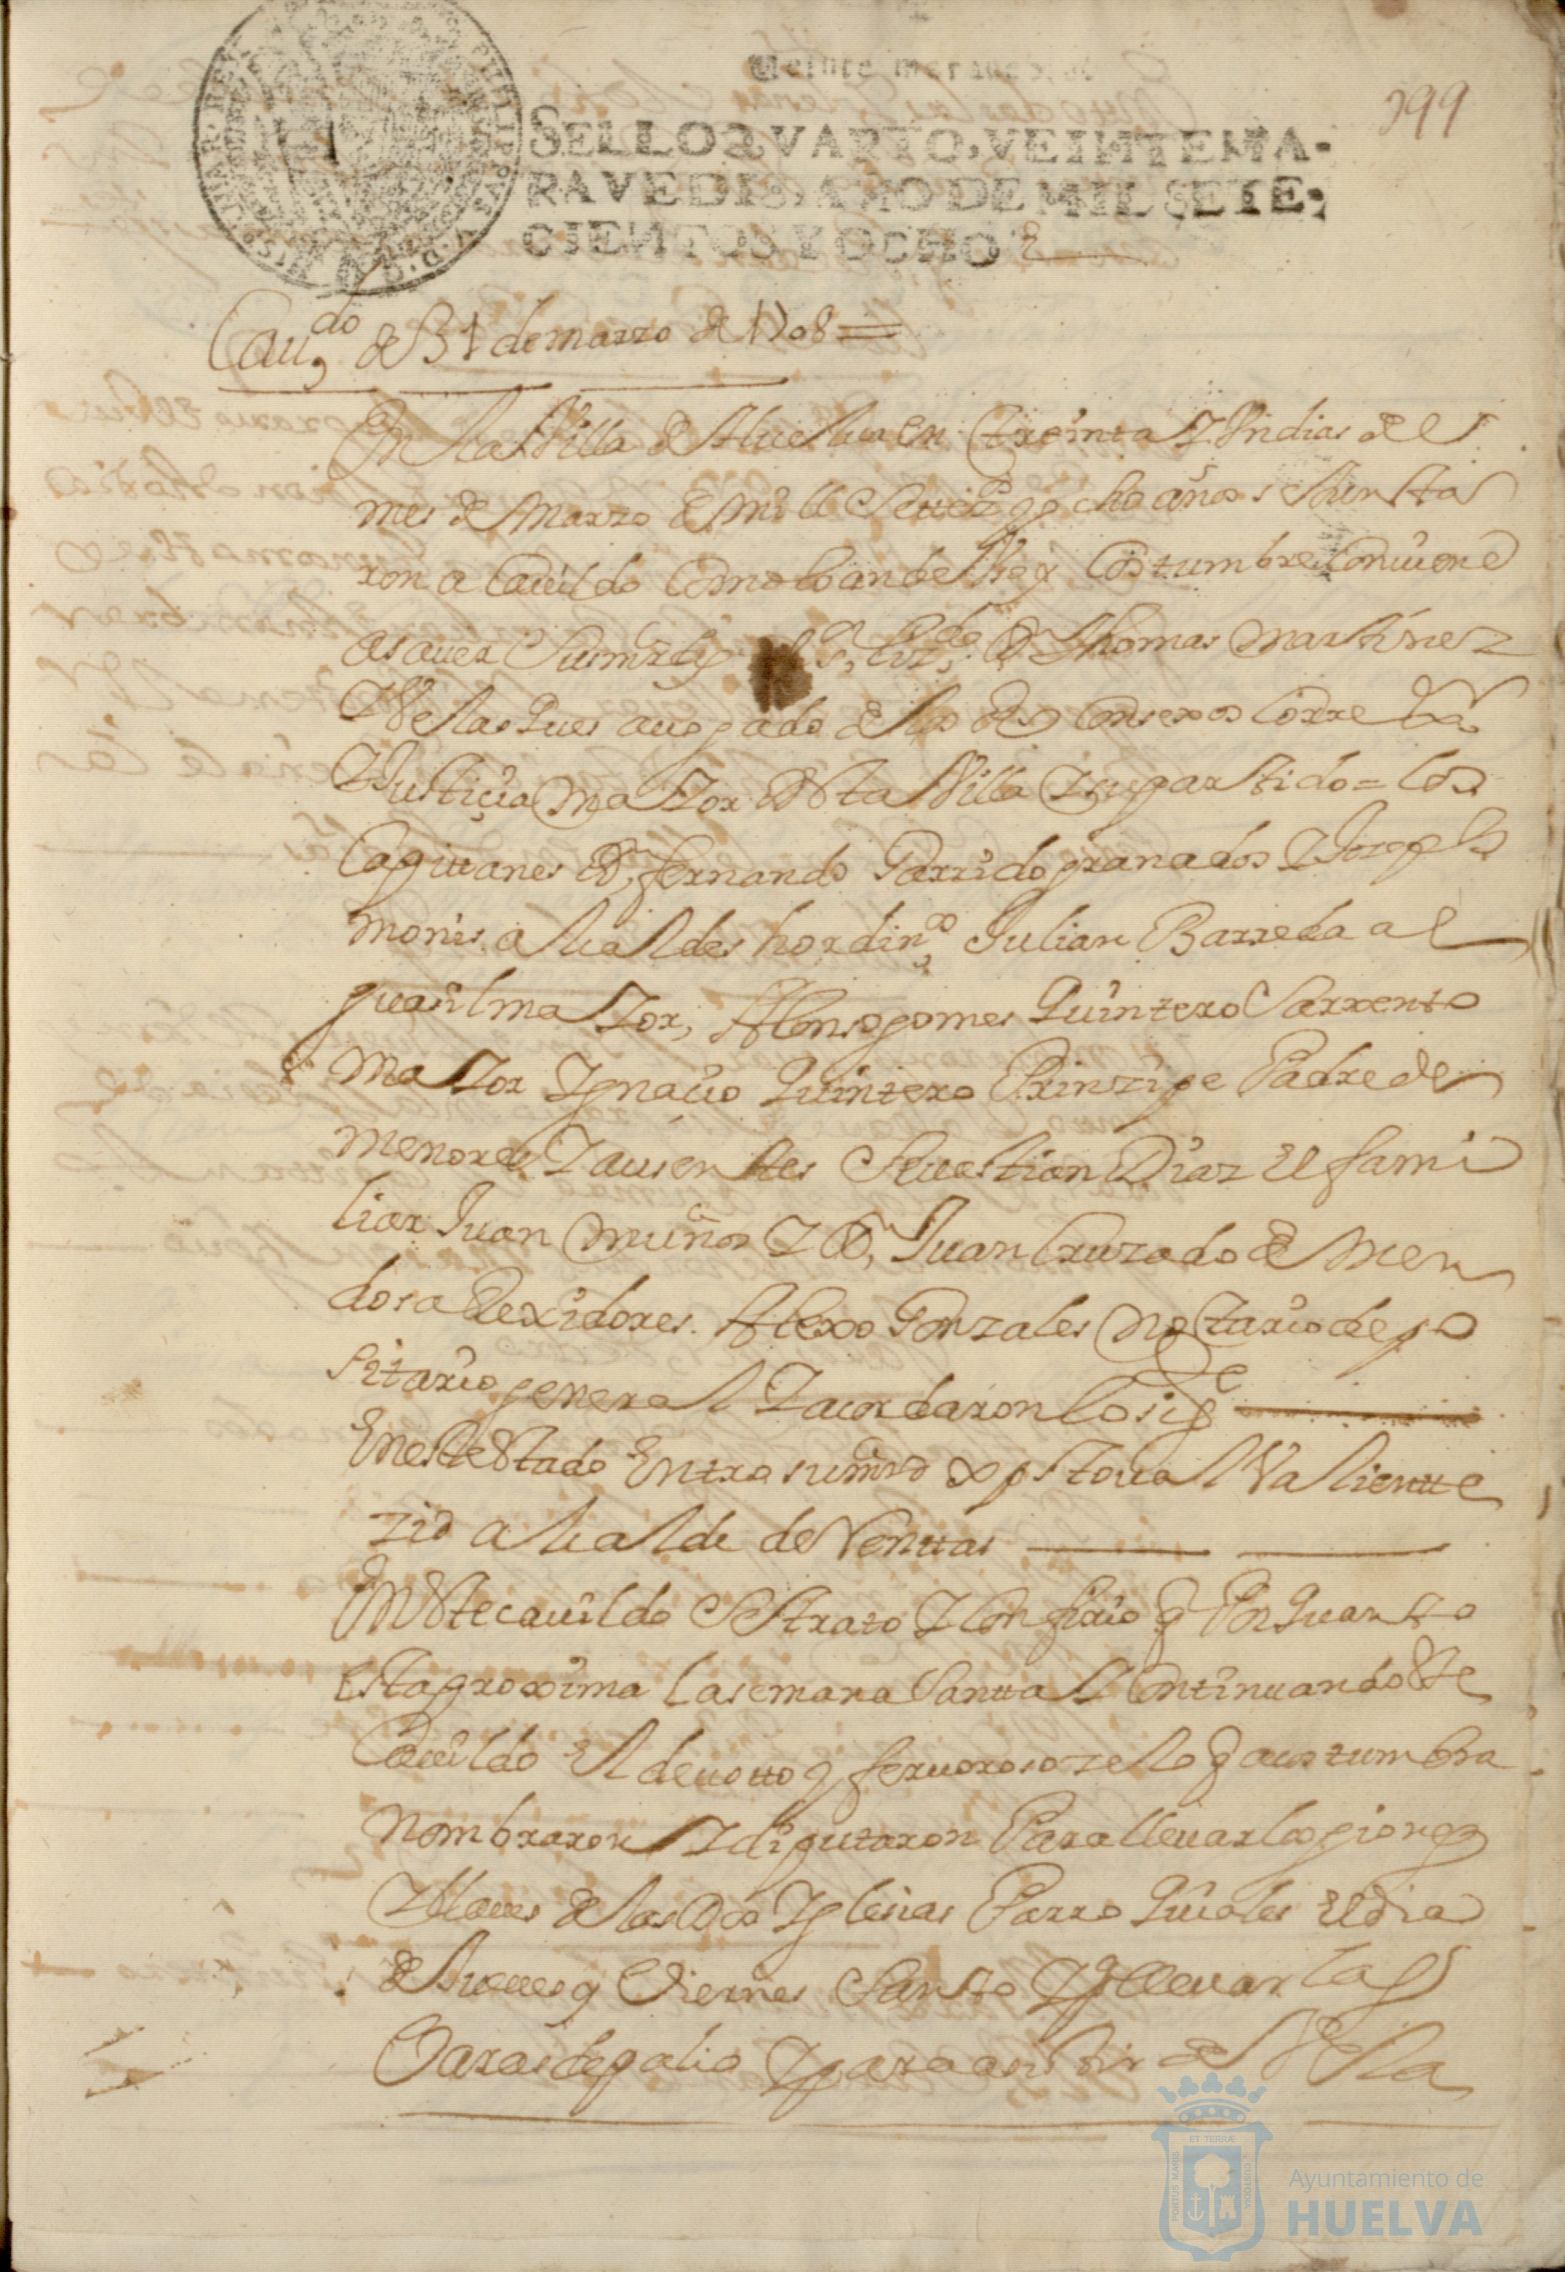 Veinte maravedis
399
SELLO QVARTO, VEINTE MA-
RAVEDIS, AÑO DE MIL SETE-
CIENTOS Y OCHO
Caudo de 31 de marzo de 1708 =
En la Villa de Huelua en treinta Y Vn dias del
mes de Marzo de mill Settez.os y ocho años se Junta
ron a Cauildo Como lo an de Vso y Costumbre Conuiene
asauer Su mrd el Sr. Lizdo Dn Thomas Martinez
Velasques auogado de los Rs Consexos Corre
Y Justiçia Mayor desta Villa Y su partido = los
Capittanes Dn fernando Garrido granados Y Joseph
monis alcaldes hordinos Julian Barreda al
guasil mayor, Alonso gomes Quintero Sarxento
Mayor Ygnaçio Quintero Prinzipe Padre de
menores Y ausentes Seuastian Diaz el fami
liar Juan Muños Y Dn Juan Cruzado de Men
dosa Rexidores. Alexo Gonzales Notario depo
sitario general Y acordaron lo sige
En este estado Entro su mrd Xpstoual Valientte
zid alcalde de Venttas
En este cauildo Se trato Y Confirio q Por Quanto
esta proxima la semana Santta Y Continuando este
Cauildo el deuotto y feruoroso zelo q acostumbra
Nombraron Y diputaron Para lleuar los piones
Y llaues de las dos Yglesias Parro Quiales el dia
de Jueues y Viernes Santo Y p lleuar las
Varas de palio Y para asistir a la
PORTUS MARIS
ET TERRÆ
CUSTODIA
Ayuntamiento de
HUELVA